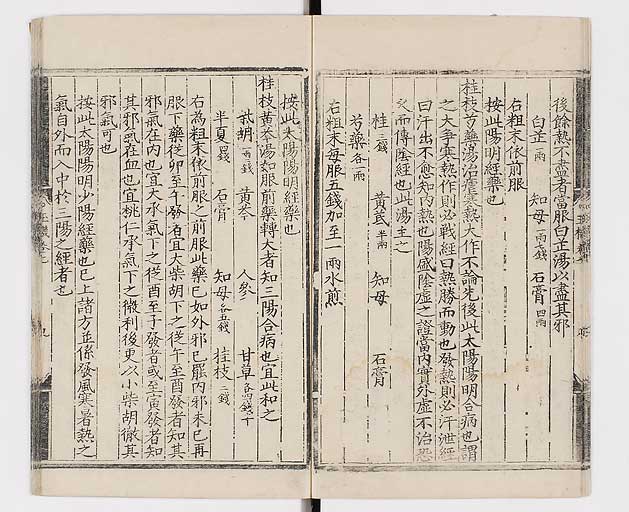 後餘熱不盡者當服白芷湯以盡其邪
白芷一兩 知母一兩七錢 石膏四兩
右粗末依前服
按此陽明經藥也
桂枝芍藥湯治瘧寒熱大作不論先後此太陽陽明合病也謂
之大爭寒熱作則必戰經曰熱勝而動也發熱則必汗泄經
曰汗出不愈知内熱也陽盛陰虛之證當内實外虛不治恐
久而傳陰經也此湯主之
桂三錢 黃芪半兩 知母 石膏
芍藥各一兩
右粗末每服五錢加至一兩水煎
按此太陽陽明經藥也
桂枝黃芩湯如服前藥轉大者知三陽合病也宜此和之
柴胡一兩二錢 黃芩 人參 甘草各四錢半
半夏四錢 石膏 知母各五錢 桂枝二錢
右為粗末依前服之前服此藥已如外邪已罷内邪未已再
服下藥從卯至午發者宜大柴胡下之從午至酉發者知其
邪氣在内也宜大承氣下之從酉至子發者或至寅發者知
其邪氣在血也宜桃仁承氣下之微利後更以小柴胡徹其
邪氣可也
按此太陽陽明少陽經藥也已上諸方並係發風寒暑熱之
氣自外而入中於三陽之經者也